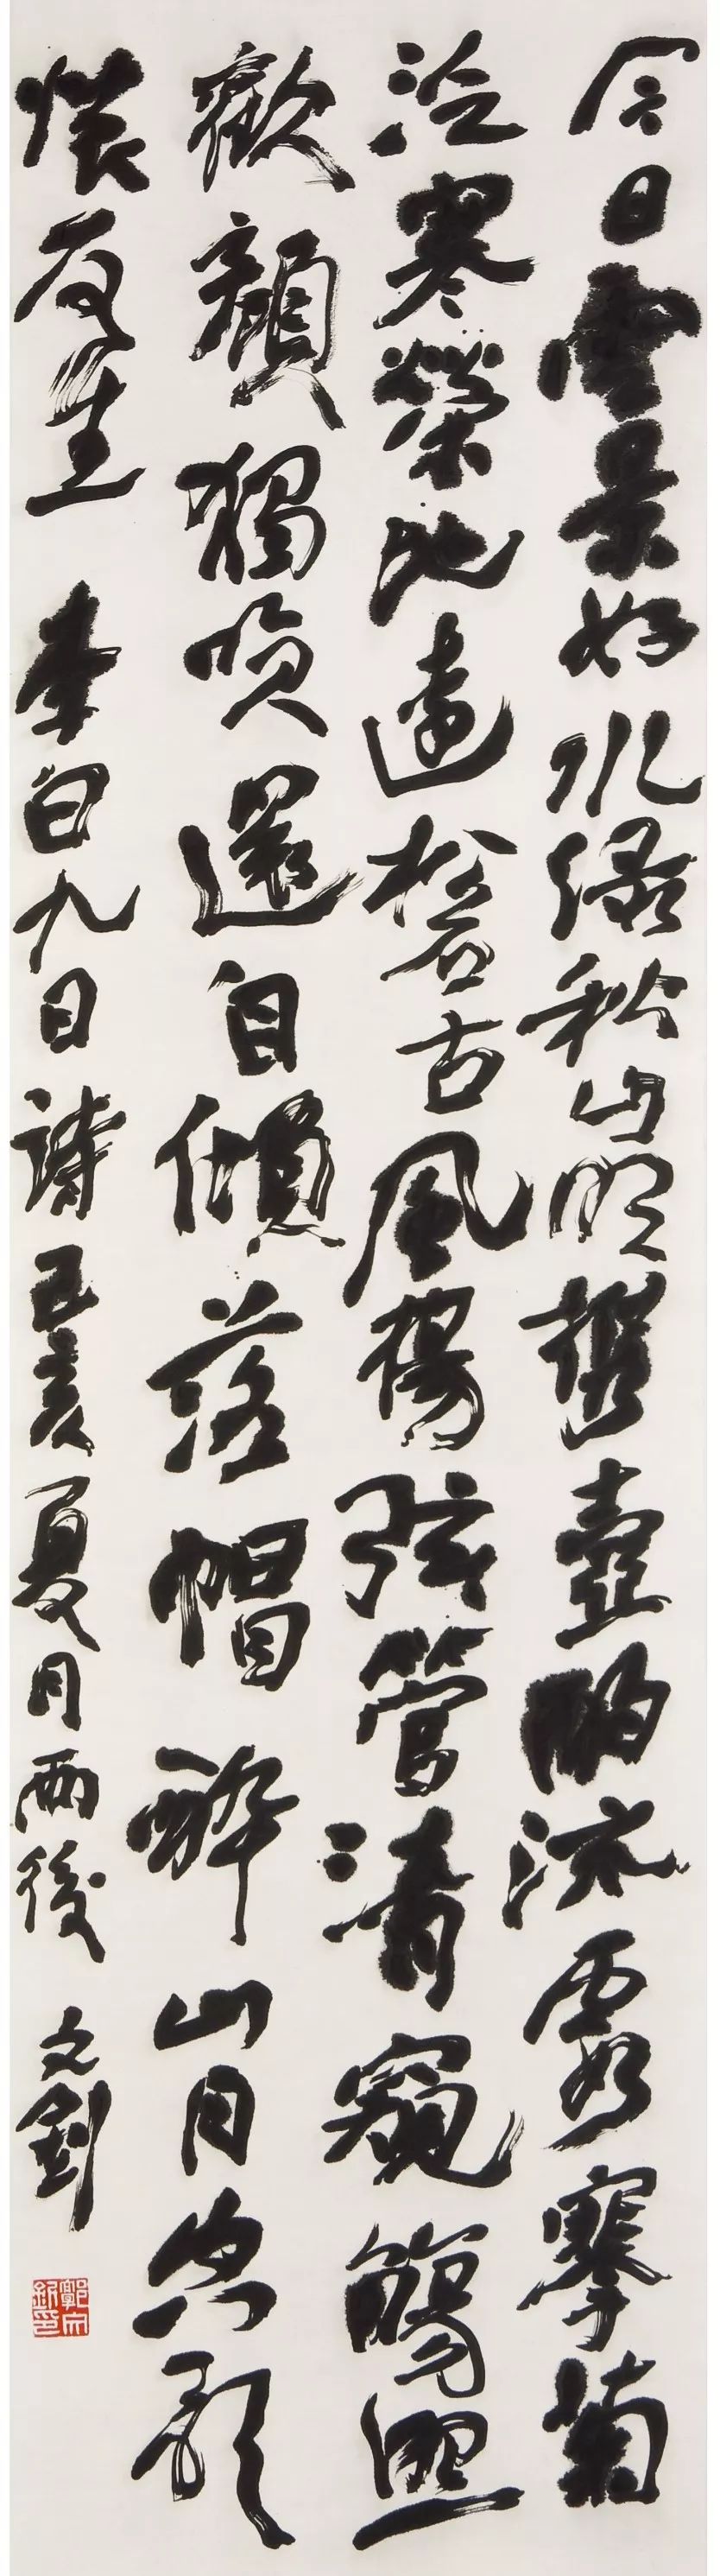 今日雲景好水綠秋山明攜壺酌流霞搴菊
泛寒榮地遠松石古風揚弦管清窺觴照
歡顏獨咲還自傾落帽醉山月空歌
懷友生 李白九日詩 己亥夏月雨後 文釗
郭文釗印